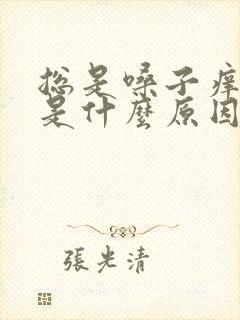 总是嗓子痒
是什麼原因
張光清